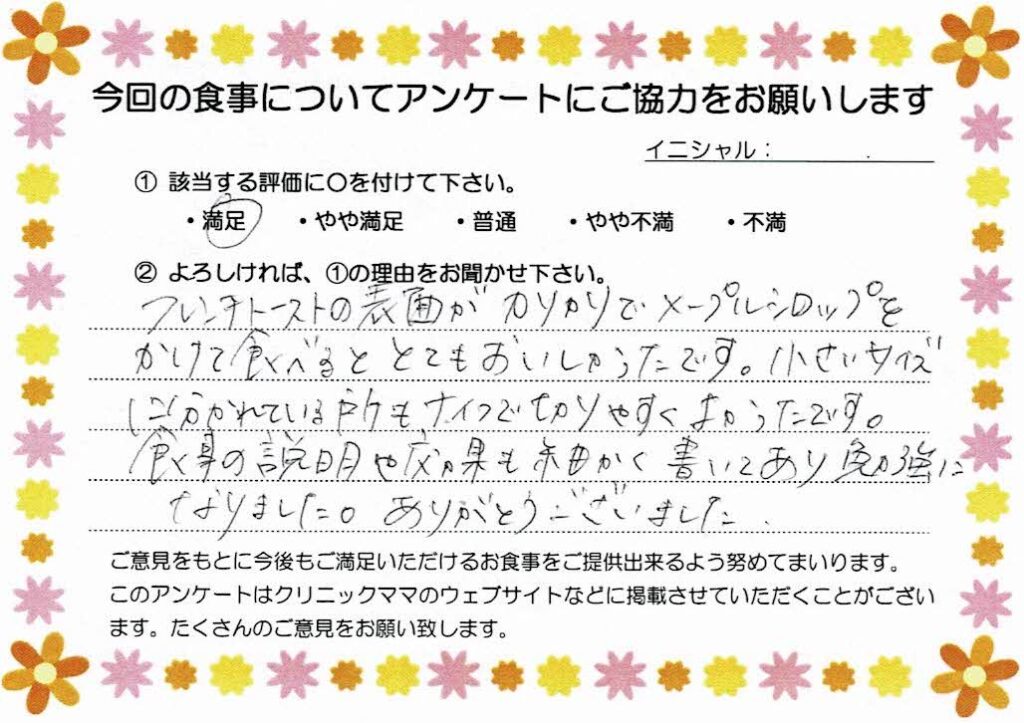 今回の食事についてアンケートにご協力をお願いします
イニシャル：
① 該当する評価に〇を付けて下さい。
・満足 ・やや満足 ・普通 ・やや不満 ・不満
② よろしければ、①の理由をお聞かせ下さい。
フレンチトーストの表面がカリカリでメープルシロップを
かけて食べるととてもおいしかったです。小さいサイズ
に分かれている所もナイフで切りやすくよかったです。
食事の説明や効果も細かく書いてあり勉強に
なりました。ありがとうございました.
ご意見をもとに今後もご満足いただけるお食事をご提供出来るよう努めてまいります。
このアンケートはクリニックママのウェブサイトなどに掲載させていただくことがござい
ます。たくさんのご意見をお願い致します。